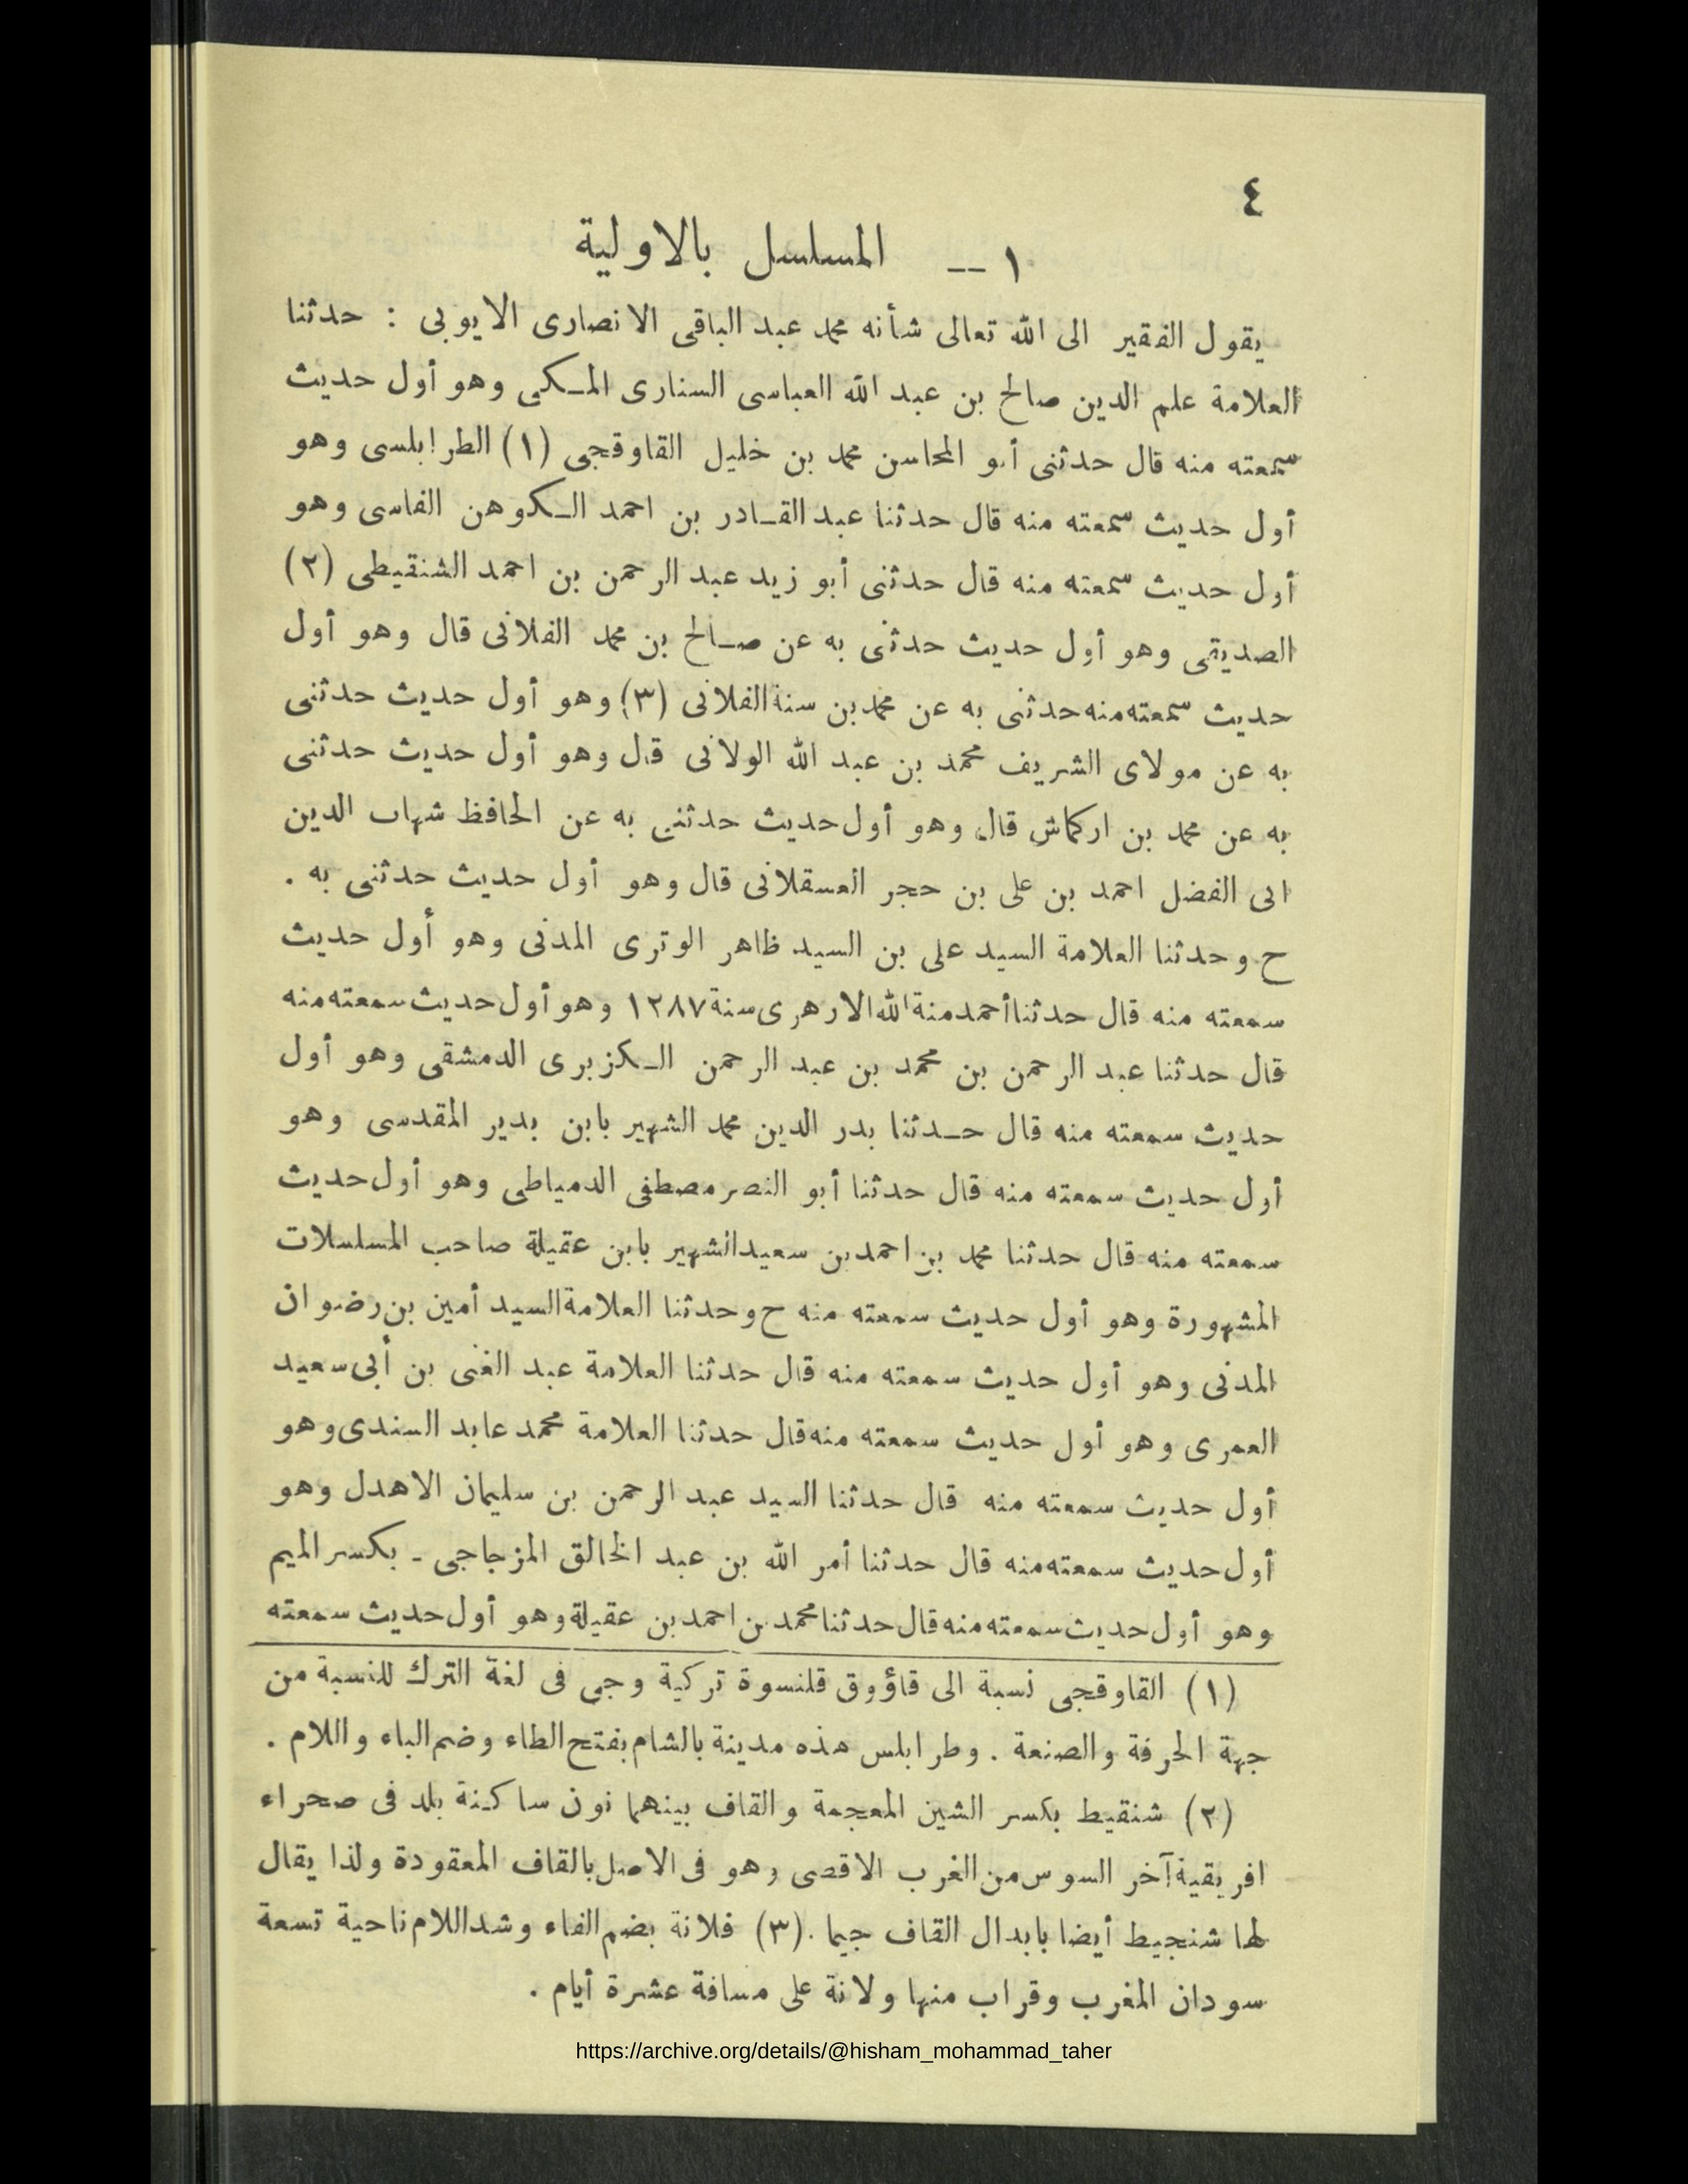 ٤
١ -- المسلسل بالاولية
يقول الفقير الى الله تعالى شأنه محمد عبد الباقى الانصارى الايوبى : حدثنا
العلامة علم الدين صالح بن عبد الله العباسى السنارى المكى وهو أول حديث
سمعته منه قال حدثنى أبو المحاسن محمد بن خليل القاوقجى (١) الطرابلسى وهو
أول حديث سمعته منه قال حدثنا عبد القادر بن احمد الكوهن الفاسى وهو
أول حديث سمعته منه قال حدثنى أبو زيد عبد الرحمن بن احمد الشنقيطى (٢)
الصديقى وهو أول حديث حدثنى به عن صالح بن محمد الفلانى قال وهو أول
حديث سمعته منه حدثنى به عن محمد بن سنة الفلانى (٣) وهو أول حديث حدثنى
به عن مولاى الشريف محمد بن عبد الله الولاتى قال وهو أول حديث حدثنى
به عن محمد بن اركماش قال وهو أول حديث حدثنى به عن الحافظ شهاب الدين
ابى الفضل احمد بن على بن حجر العسقلانى قال وهو أول حديث حدثنى به .
ح وحدثنا العلامة السيد على بن السيد ظاهر الوترى المدنى وهو أول حديث
سمعته منه قال حدثنا أحمد منة الله الازهرى سنة ١٢٨٧ وهو أول حديث سمعته منه
قال حدثنا عبد الرحمن بن محمد بن عبد الرحمن الكزبرى الدمشقى وهو أول
حديث سمعته منه قال حدثنا بدر الدين محمد الشهير بابن بدير المقدسى وهو
أول حديث سمعته منه قال حدثنا أبو النصر مصطفى الدمياطى وهو أول حديث
سمعته منه قال حدثنا محمد بن احمد بن سعيد الشهير بابن عقيلة صاحب المسلسلات
المشهورة وهو أول حديث سمعته منه ح وحدثنا العلامة السيد أمين بن رضوان
المدنى وهو أول حديث سمعته منه قال حدثنا العلامة عبد الغنى بن أبى سعيد
العمرى وهو أول حديث سمعته منه قال حدثنا العلامة محمد عابد السندى وهو
أول حديث سمعته منه قال حدثنا السيد عبد الرحمن بن سليمان الاهدل وهو
أول حديث سمعته منه قال حدثنا أمر الله بن عبد الخالق المزجاجى - بكسر الميم
وهو أول حديث سمعته منه قال حدثنا محمد بن احمد بن عقيلة وهو أول حديث سمعته
(١) القاوقجى نسبة الى قاؤوق قلنسوة تركية وجى فى لغة الترك للنسبة من
جهة الحرفة والصنعة . وطرابلس هذه مدينة بالشام بفتح الطاء وضم الباء واللام .
(٢) شنقيط بكسر الشين المعجمة والقاف بينهما نون ساكنة بلد فى صحراء
افريقية آخر السوس من الغرب الاقصى وهو فى الاصل بالقاف المعقودة ولذا يقال
لها شنجيط أيضا بابدال القاف جيما . (٣) فلانة بضم الفاء وشد اللام ناحية تسعة
سودان المغرب وقراب منها ولاتة على مسافة عشرة أيام .
https://archive.org/details/@hisham_mohammad_taher